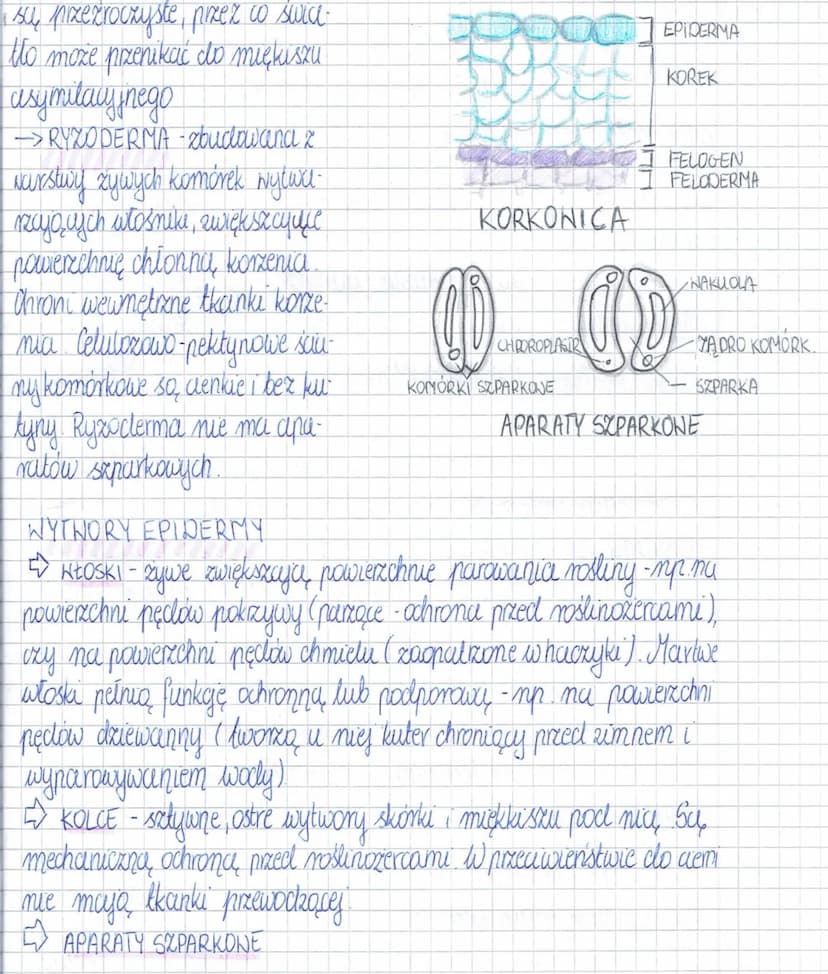 są przeźroczyste, przez co świa-
tło może przenikać do miękiszu
asymilacyjnego
→ RYZODERMA - zbudowana z
warstwy żywych komórek wytwa-
rzających włośniki, zwiększające
powierzchnię chłonną korzenia.
Chroni wewnętrzne tkanki korze-
nia. Celulozowo-pektynowe ścia-
ny komórkowe są cienkie i bez ku-
tyny. Ryzoderma nie ma apa-
ratów szparkowych.
EPIDERMA
KOREK
FELOGEN
FELODERMA
KORKONICA
WAKUOLA
CHLOROPLAST
JĄDRO KOMÓRK.
KOMÓRKI SZPARKOWE
SZPARKA
APARATY SZPARKOWE
WYTWORY EPIDERMY
⇨ WŁOSKI - żywe zwiększają powierzchnie parowania rośliny - np. na
powierzchni pędów pokrzywy (parzące - ochrona przed roślinożercami),
czy na powierzchni pędów chmielu (zaopatrzone w haczyki). Martwe
włoski pełnią funkcję ochronną lub podporową - np. na powierzchni
pędów dziewanny (tworzą u niej kuter chroniący przed zimnem i
wyparowywaniem wody)
⇨ KOLCE - sztywne, ostre wytwory skórki i miękkiszu pod nią. Są
mechaniczną ochroną przed roślinożercami. W przeciwieństwie do cierni
nie mają tkanki przewodzącej.
⇨ APARATY SZPARKOWE